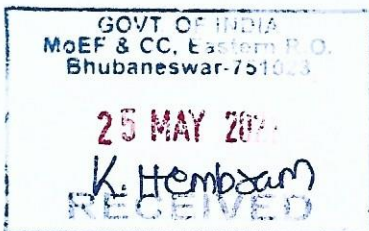 GOVT OF INDIA
MoEF & CC, Eastern R.O.
Bhubaneswar-751023
25 MAY
K. Hembram
RECEIVED